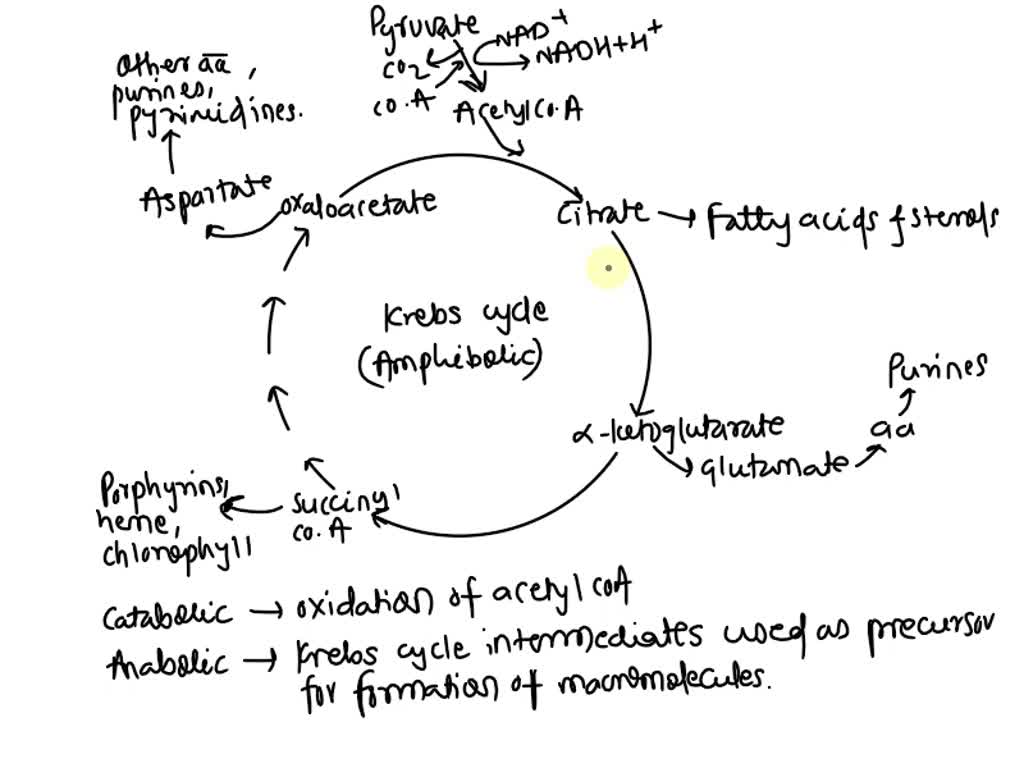 Pyruvate
NAD+
NADH+H+
CO2
CO.A
Acetyl Co.A
Other aa,
purines,
pyrimidines.
Aspartate
oxaloacetate
Citrate → Fatty acids & sterols
Krebs cycle
(Amphibolic)
Purines
aa
α-ketoglutarate
glutamate
Succinyl
co.A
Porphyrins,
heme,
chlorophyll
Catabolic → oxidation of acetyl coA
Anabolic → Krebs cycle intermediates used as precursor
for formation of macromolecules.